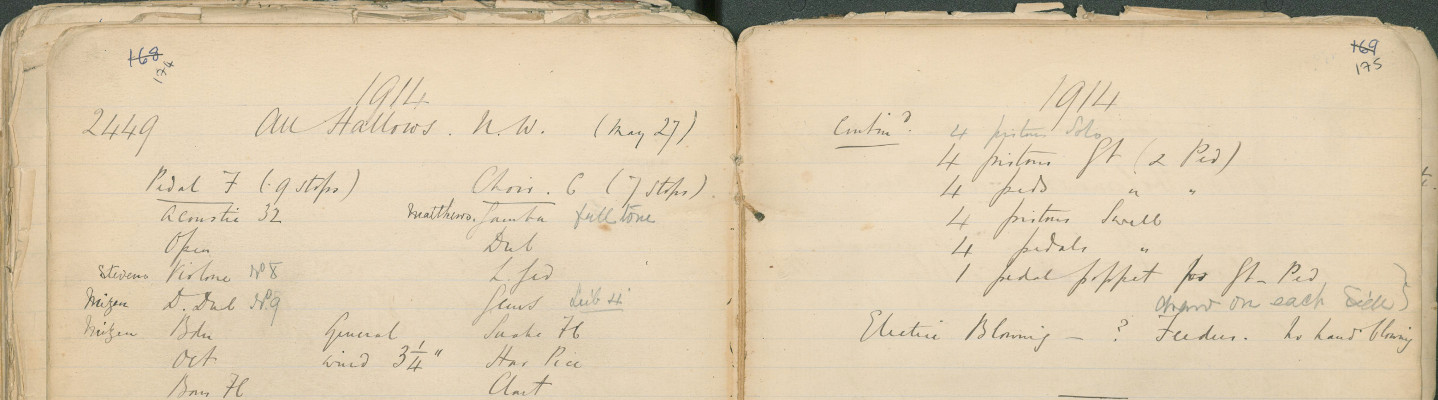 168
174
1914
2449 All Hallows. N.W. (May 27)
Pedal 7 (9 stops) Choir. 6 (7 stops)
Acoustic 32 Matthews. Gamba full tone
Open Dul
Stevens Violone No 8 L. Ged
Mizen D. Dul No. 9 Gems Lieb 4
Mizen Bdn General Suabe Fl
Oct wind 3 1/4" Har Picc
Bass Fl Clart
169
175
1914
Contind. 4 pistons Solo
4 pistons Gt (2 Ped)
4 peds " "
4 pistons Swell
4 pedals "
1 pedal poppet for Gt - Ped
draw on each side
Electric Blowing - ? Feeders. No hand blowing